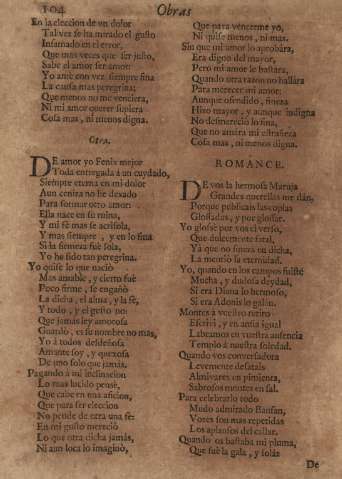 104
Obras
En la eleccion de un dolor
Talvez se ha mirado el gusto
Infamado en el error,
Que mas veces que ser justo,
Sabe el amor ser amor:
Yo ame con vez, siempre fina
La causa mas peregrina;
Que menos no me venciera,
Ni mi amor querer supiera
Cosa mas, ni menos digna.
Otra.
DE amor yo Fenix mejor
Toda entregada à un cuydado,
Siempre eterna en mi dolor
Aun ceniza no he dexado
Para formar otro amor:
Ella nace en su ruina,
Y mi fè mas se acrisola,
Y mas siempre, y en lo fina
Si la fineza fuè sola,
Yo he sido tan peregrina.
Yo quise lo que naciò
Mas amable, y cierto fuè
Poco firme, se engañò
La dicha, el alma, y la fè,
Y todo, y el gesto no:
Que jamas ley amorosa
Guardò, es su nombre no mas,
Yo à todos desdeñosa
Amante soy, y quexosa
De uno solo que jamàs.
Pagando à mi inclinacion
Lo mas lucido pensè,
Que cabe en una aficion,
Que para ser eleccion
No puede de otra una fè:
En mi gusto mereciò
Lo que otra dicha jamàs,
Ni aun loca lo imaginò,
Que para vencerme yo,
Ni quise menos, ni mas.
Sin que mi amor lo aprobàra,
Era digno del mayor,
Pero mi amor le bastàra,
Quando otra razon no hallàra
Para merecer mi amor:
Aunque ofendido, fineza
Hizo mayor, y aunque indigna
No desmereciò lo fina,
Que no amira mi estrañeza
Cosa mas, ni menos digna.
ROMANCE.
DE vos la hermosa Maruja
Grandes querellas me dàn,
Porque publicais las coplas
Glossadas, y por glossar.
Yo glossè por vos el verso,
Que dulcemente fatal,
Ya que no fuuera en dicha,
La mentiò la eternidad.
Yo, quando en los campos fuiste
Mucha, y dudosa deydad,
Si era Diana lo hermoso,
Si era Adonis lo galàn.
Montes à vuestro retiro
Escriví, y en ansia igual
Labramos en vuestra ausencia
Templo à nuestra soledad.
Quando vos conversadora
Levemente desatais
Almivares en pimienta,
Sabrosos montes en sal.
Para celebrarlo todo
Mudo admirado Bausan,
Votes son mas repetidas
Los aplausos del callar.
Quando os bastaba mi pluma,
Que fuè la gala, y solàs
De